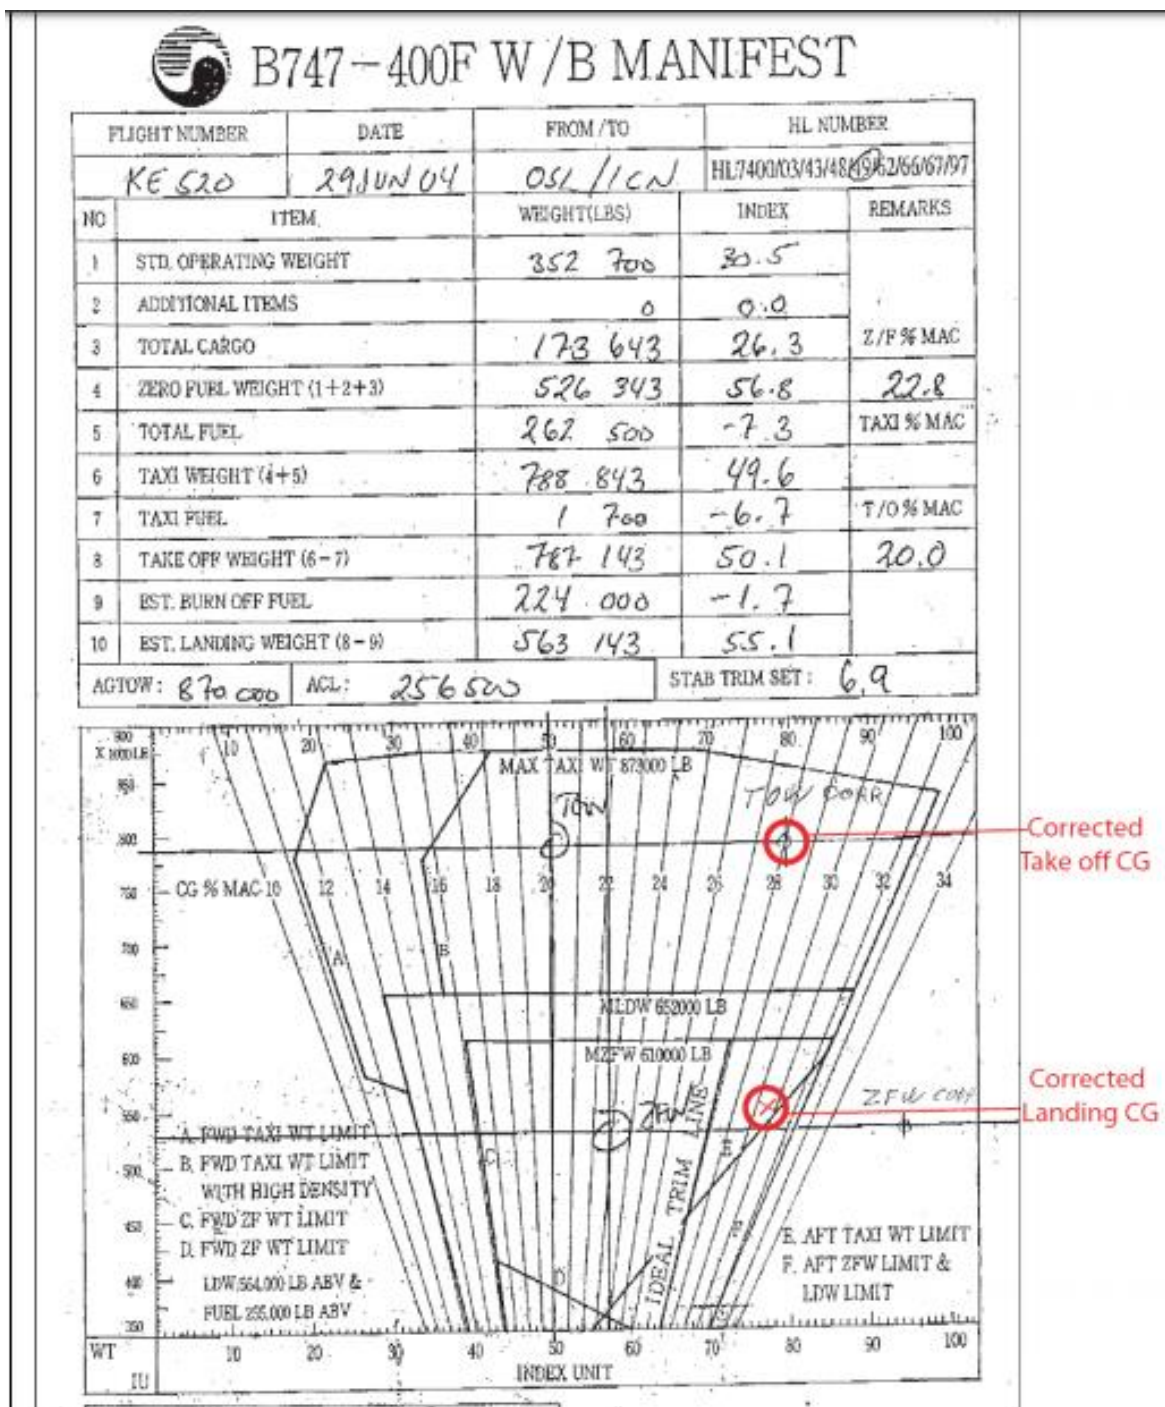 B747-400F W/B MANIFEST
FLIGHT NUMBER DATE FROM/TO HL NUMBER
KE 520 29JUN04 OSL/ICN HL7400/03/43/48/49/62/66/67/97
NO ITEM WEIGHT(LBS) INDEX REMARKS
1 STD. OPERATING WEIGHT 352 700 30.5
2 ADDITIONAL ITEMS 0 0.0
3 TOTAL CARGO 173 643 26.3 Z/F % MAC
4 ZERO FUEL WEIGHT (1+2+3) 526 343 56.8 22.8
5 TOTAL FUEL 262 500 -7.3 TAXI % MAC
6 TAXI WEIGHT (4+5) 788 843 49.6
7 TAXI FUEL 1 700 -6.7 T/O % MAC
8 TAKE OFF WEIGHT (6-7) 787 143 50.1 20.0
9 EST. BURN OFF FUEL 224 000 -1.7
10 EST. LANDING WEIGHT (8-9) 563 143 55.1
AGTOW: 870 000 ACL: 256500 STAB TRIM SET: 6,9
900 10 20 30 40 50 60 70 80 90 100
X 1000 LB
MAX TAXI WT 873000 LB
850
TOW TOW CORR
800
Corrected
Take off CG
750 CG % MAC 10 12 14 16 18 20 22 24 26 28 30 32 34
700 A B
650 MLDW 652000 LB
600 MZFW 610000 LB
ZFW ZFW CORR
Corrected
Landing CG
550
A. FWD TAXI WT LIMIT
B. FWD TAXI WT LIMIT
WITH HIGH DENSITY
500 C
C. FWD ZF WT LIMIT
450
D. FWD ZF WT LIMIT
LDW 564,000 LB ABV &
400
FUEL 255,000 LB ABV
350
D
IDEAL TRIM LINE
E. AFT TAXI WT LIMIT
F. AFT ZFW LIMIT &
LDW LIMIT
WT 10 20 30 40 50 60 70 80 90 100
IU INDEX UNIT